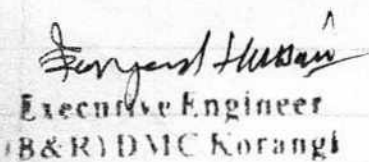 Hussain
Executive Engineer
(B&R) DMC Korangi